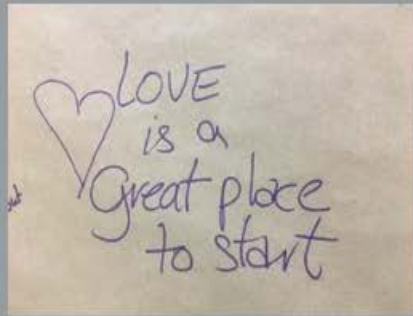 LOVE
is a
Great place
to start